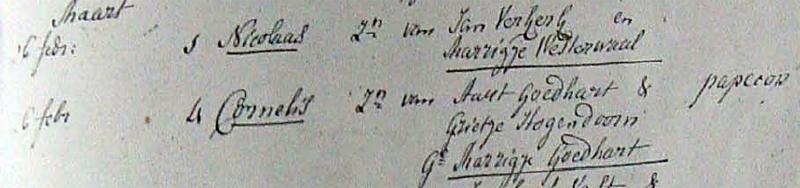 Maart
6 feb: 5 Nicolaas Zn van Jan Verkerk en
Marrigje Westerwaal
6 feb 4 Cornelis Zn van Aart Goedhart & papecop
Grietje Hogendoorn
Ge Marrigje Goedhart